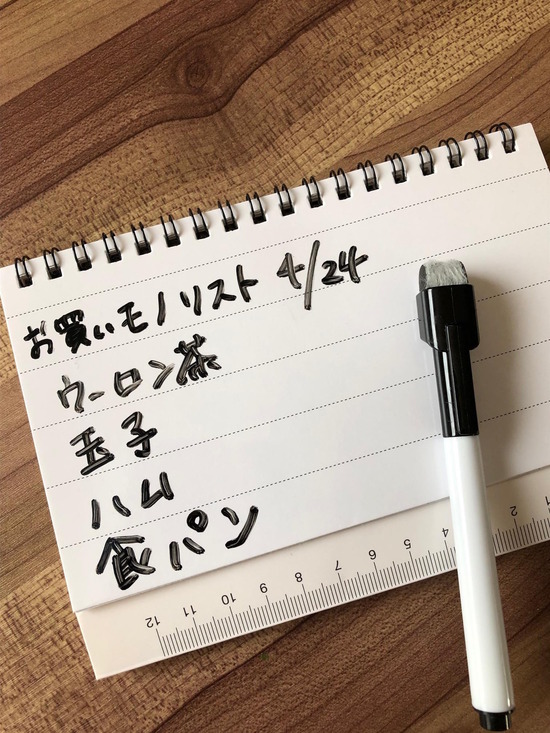 お買いモノリスト 4/24
ウーロン茶
玉子
ハム
食パン
12 11 10 9 8 7 6 5 4 2 1